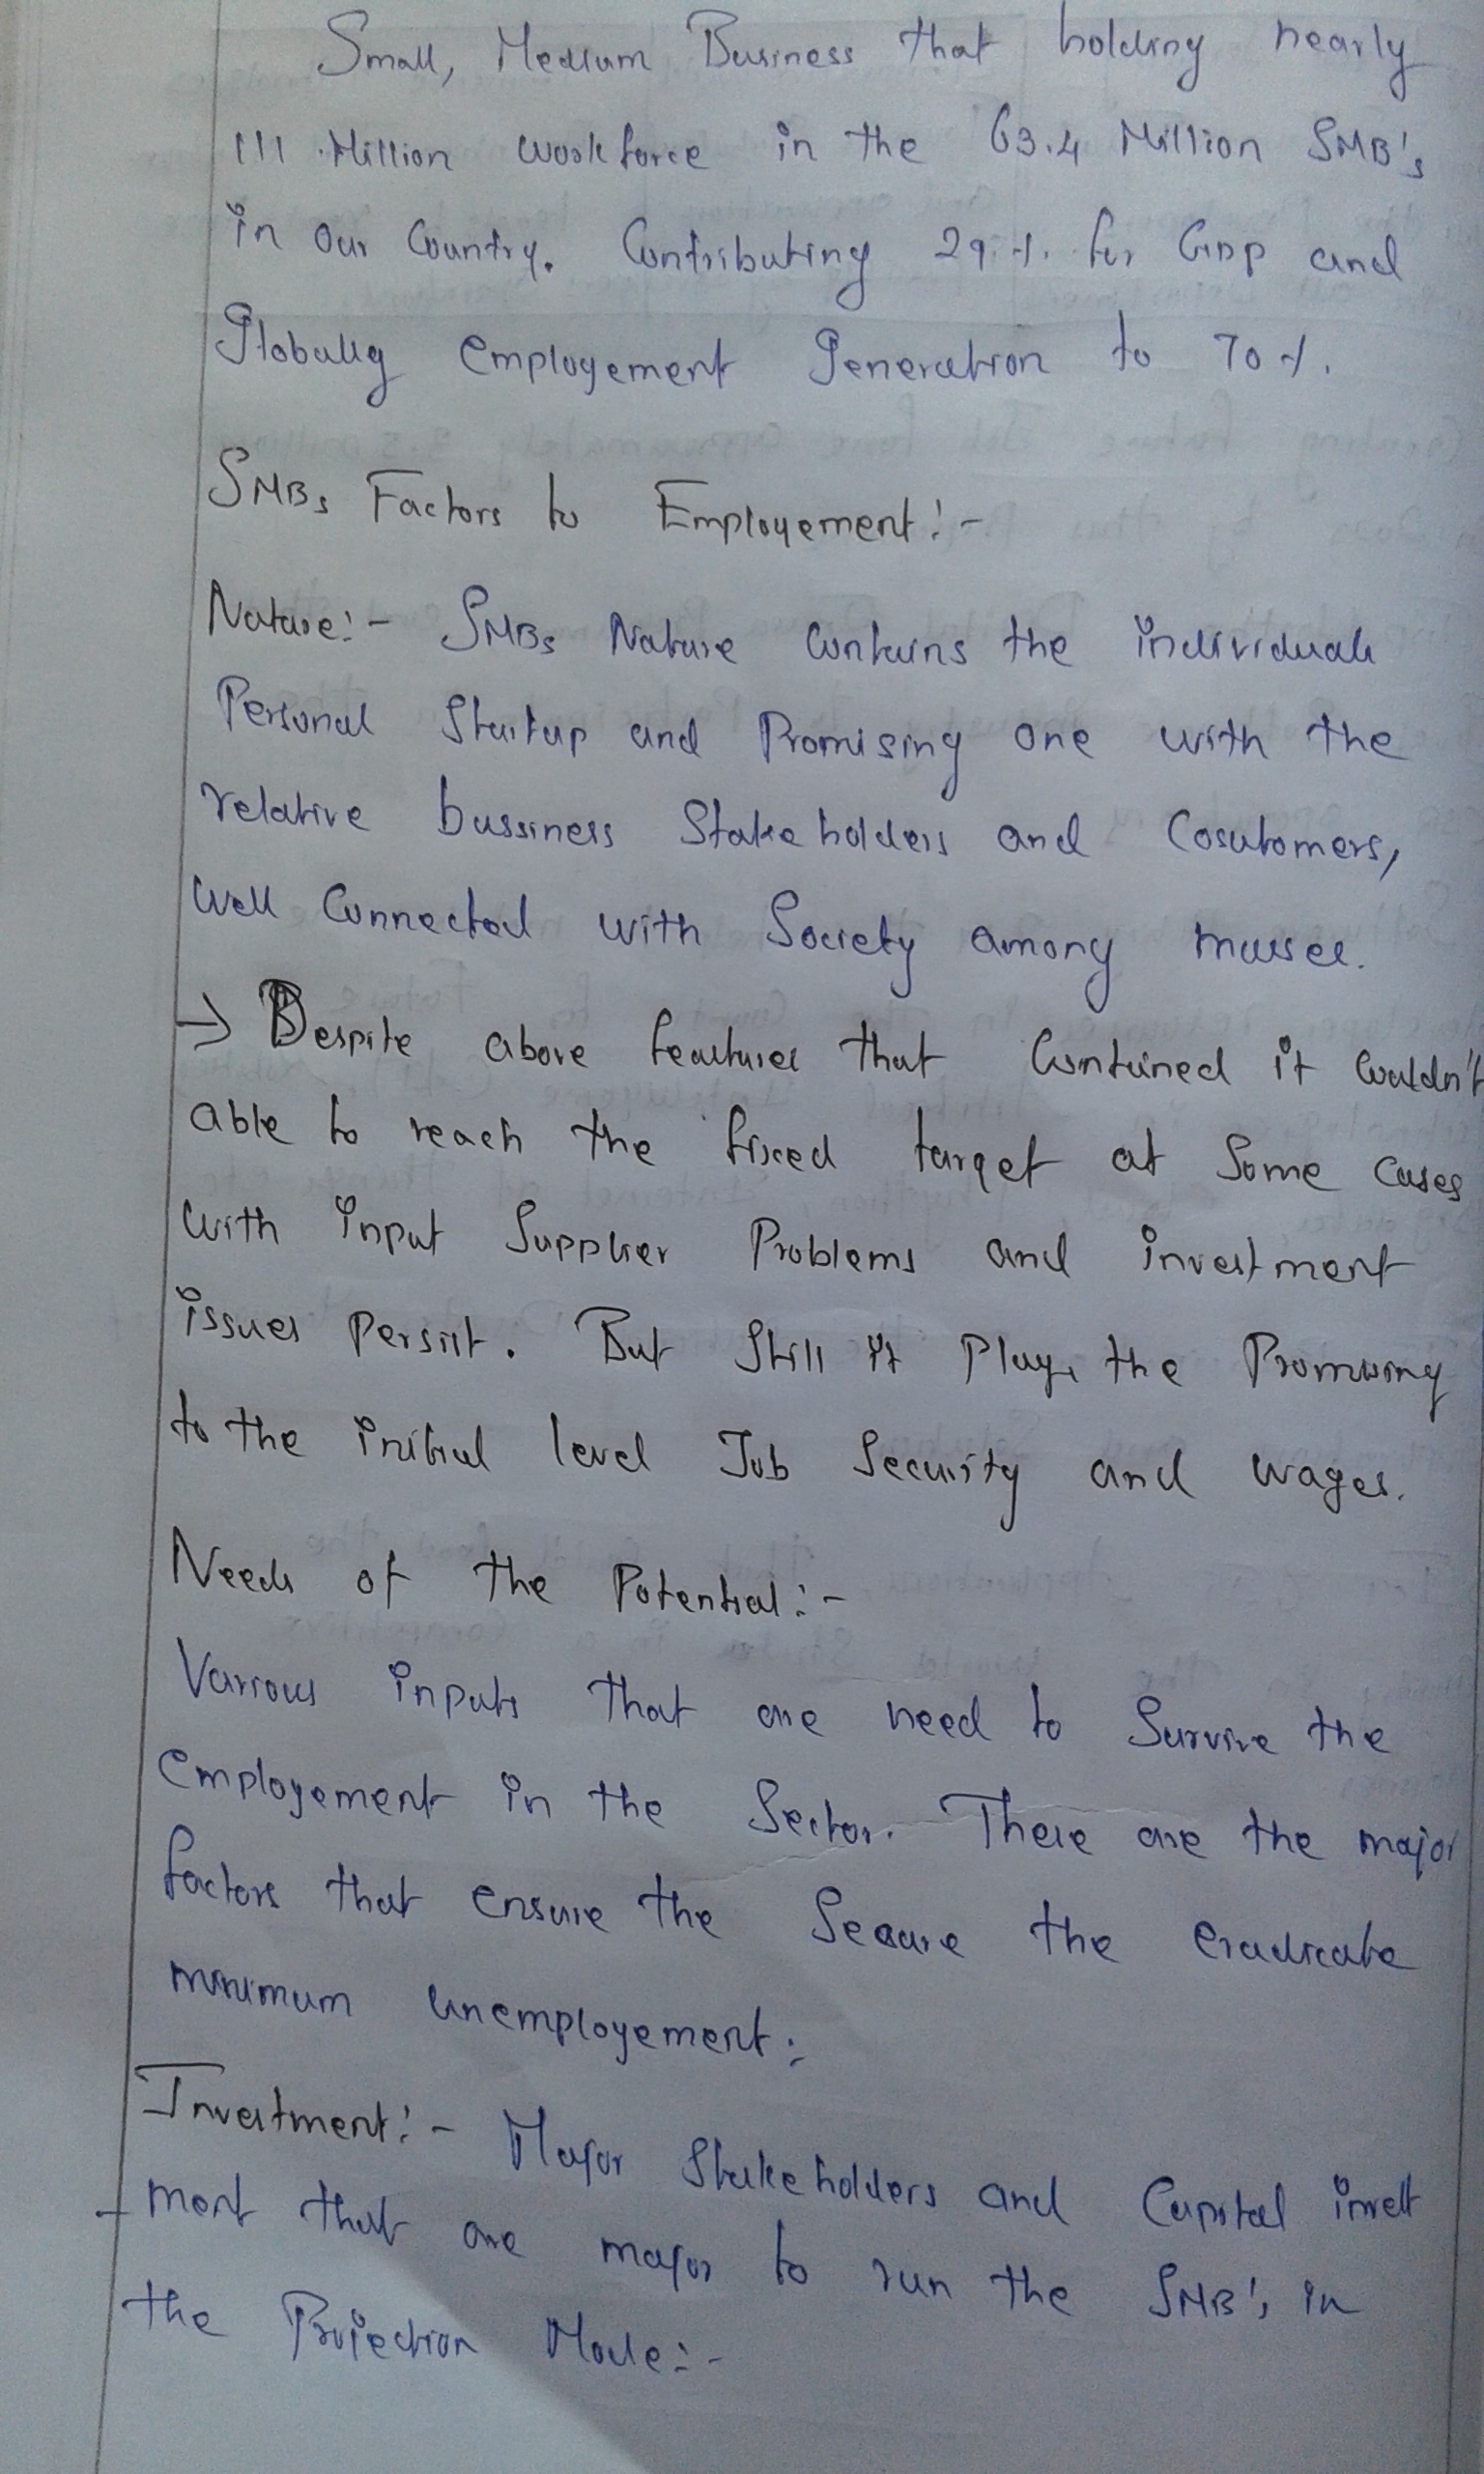 Small, Medium Business that holding nearly
111 Million workforce in the 63.4 Million SMB's
in our Country. Contributing 29% for GDP and
Globally employement generation to 70%.
SMBs Factors to Employement:-
Nature:- SMBs Nature contains the individuals
Personal Startup and Promising one with the
relative bussiness Stakeholders and Cosutomers,
well Connected with Society among masses.
→ Despite above features that Contained it Couldn't
able to reach the fixed target at Some cases
with input Supplier Problems and investment
issues Persist. But Still it Plays the Promising
to the initial level Job Security and wages.
Needs of the Potential:-
Various inputs that are need to Survive the
employement in the Sector. There are the major
factors that ensure the Secure the eradicate
minimum unemployement:
Investment:- Major Stakeholders and Capital invest
-ment that are major to run the SMB's in
the Projection Mode:-